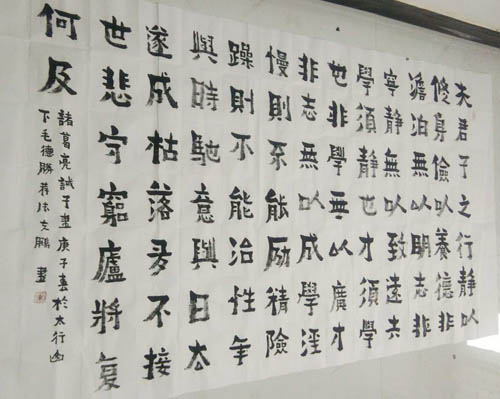 夫君子之行静以
修身儉以養德非
澹泊無以明志非
寧静無以致遠夫
學須静也才須學
也非學無以廣才
非志無以成學淫
慢則不能励精險
躁則不能治性年
與時馳意與日去
遂成枯落多不接
世悲守窮廬將復
何及
諸葛亮誡子書庚子春於太行山
下毛德勝左鵬書